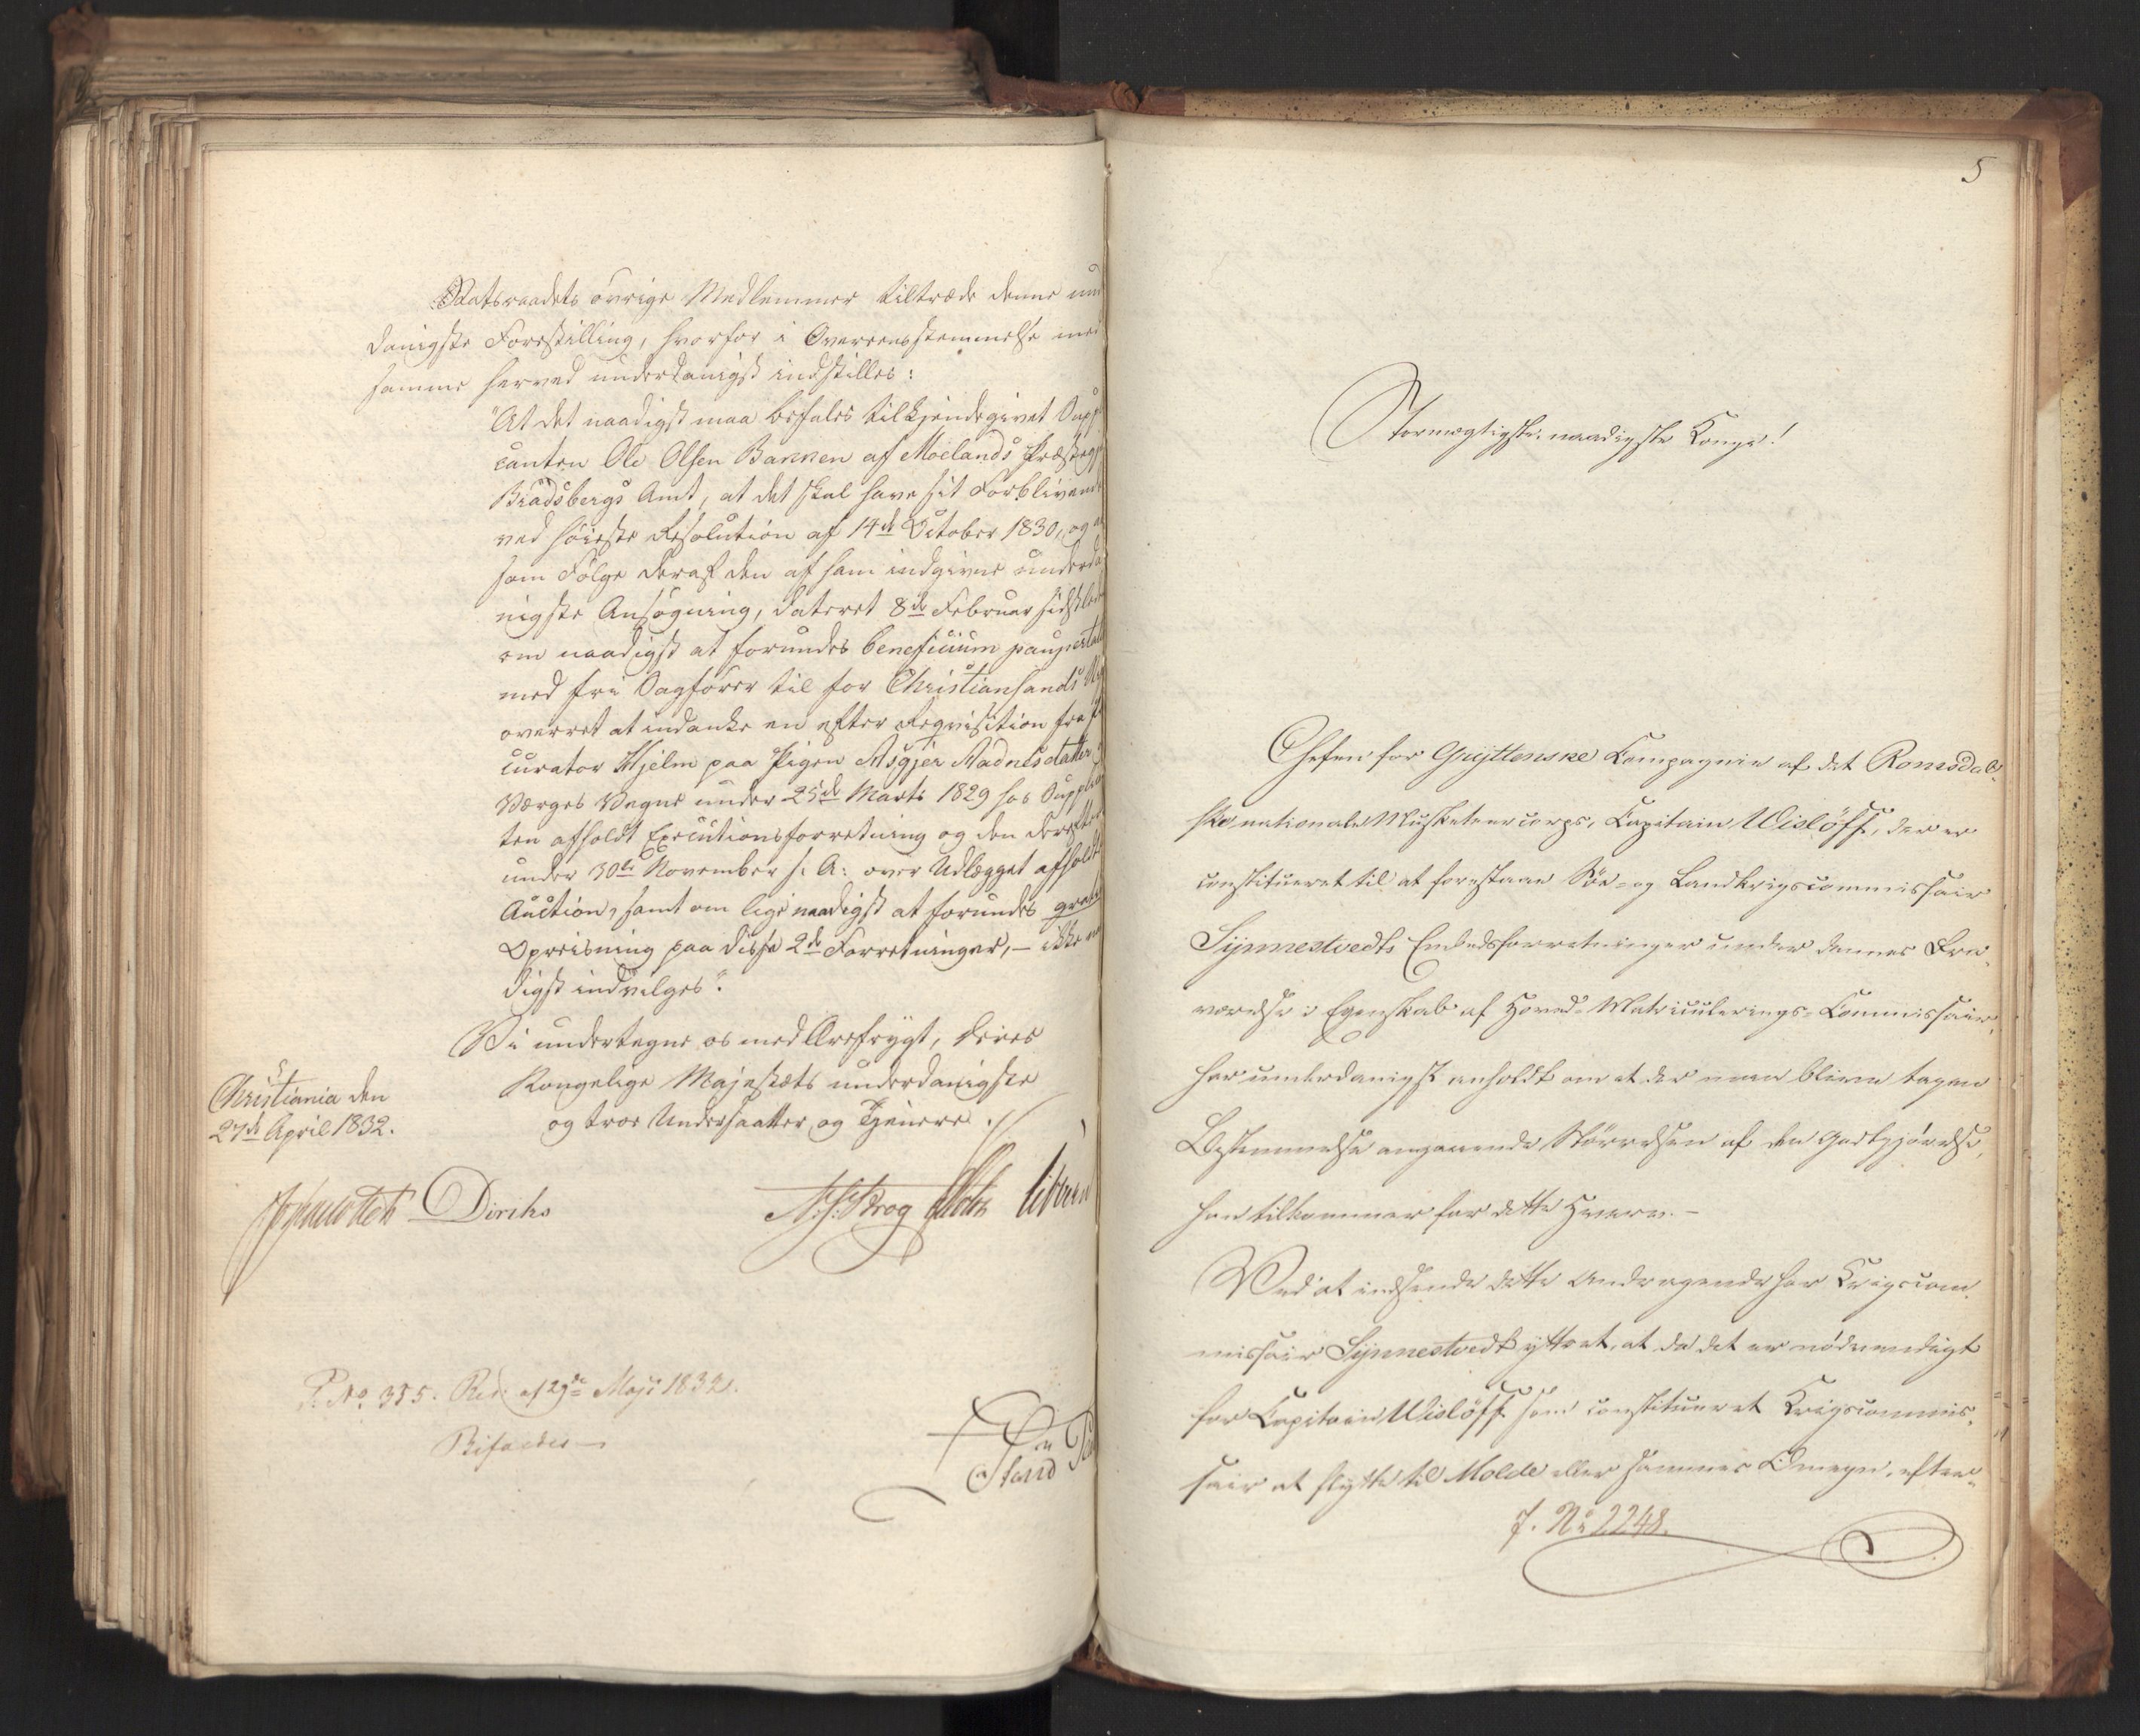 Statsraadets övrige Medlemmer tiltræde denne un
danigste Forestilling, hvorfor i Overeensstemmelse med
samme herved underdanigst indstilles:
"At det naadigst maa befales tilkjendegivet Supp
canten Ole Olsen Bakken af Moelands Præstegj
Bradsbergs Amt, at det skal have sit Forblivend
ved høieste Resolution af 14de October 1830, og at
som Følge deraf den af ham indgivne underda
nigste Ansøgning, dateret 8de Februar sidstled
om naadigst at forundes beneficium paupertat
med fri Sagfører til for Christiansands
overret at indanke en efter Reqvisition fra
curator Hjelm paa Pigen Asgjer Aadnesdatters
Værges Vegne under 25de Marts 1829 hos Suppli
ten afholdt Executionsforretning og den derefter
under 30te November s. A. over Udlægget afholdt
Auction, samt om lige naadigst at forundes gratis
Opreisning paa disse 2de Forretninger, – ikke naa
digst indvilges".
Vi undertegne os med Ærefrygt, Deres
Kongelige Majestæts underdanigste
og troe Undersaatter og Tjenere.
Christiania den
27de April 1832.
Diriks
P. No 355. Res: af 29de Maji 1832.
Bifaldes
5
Stormægtigste, naadigste Konge!
Chefen for Gryttenske Compagnie af det Romsdal-
ske nationale Musketeercorps, Capitain Wisløff, der er
constitueret til at forestaae Søe- og Landkrigscommissair
Synnestvedts Embedsforretninger under dennes Fra-
værelse i Egenskab af Hoved-Matriculerings-Commissair,
har underdanigst anholdt om at der maa blive tagen
Bestemmelse angaaende Størrelsen af den Godtgjørelse,
han tilkommer for dette Hverv.–
Ved at indsende dette Andragende har Krigscom-
missair Synnestvedt yttret, at da det er nødvendigt
for Capitain Wisløff som constitueret Krigscommis-
sair at flytte til Molde eller sammes Omegn, efter-
J. No 2248.